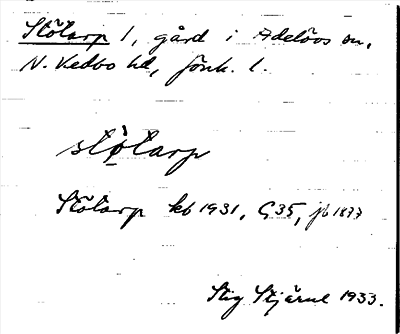 Stötarp 1, gård i Adelövs sn,
N. Vedbo hd, Jönk. l.
stò̤tarp
Stötarp kb 1931, G35, jb 1877
Stig Stjärne 1933.